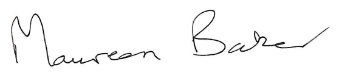 Maureen Baker